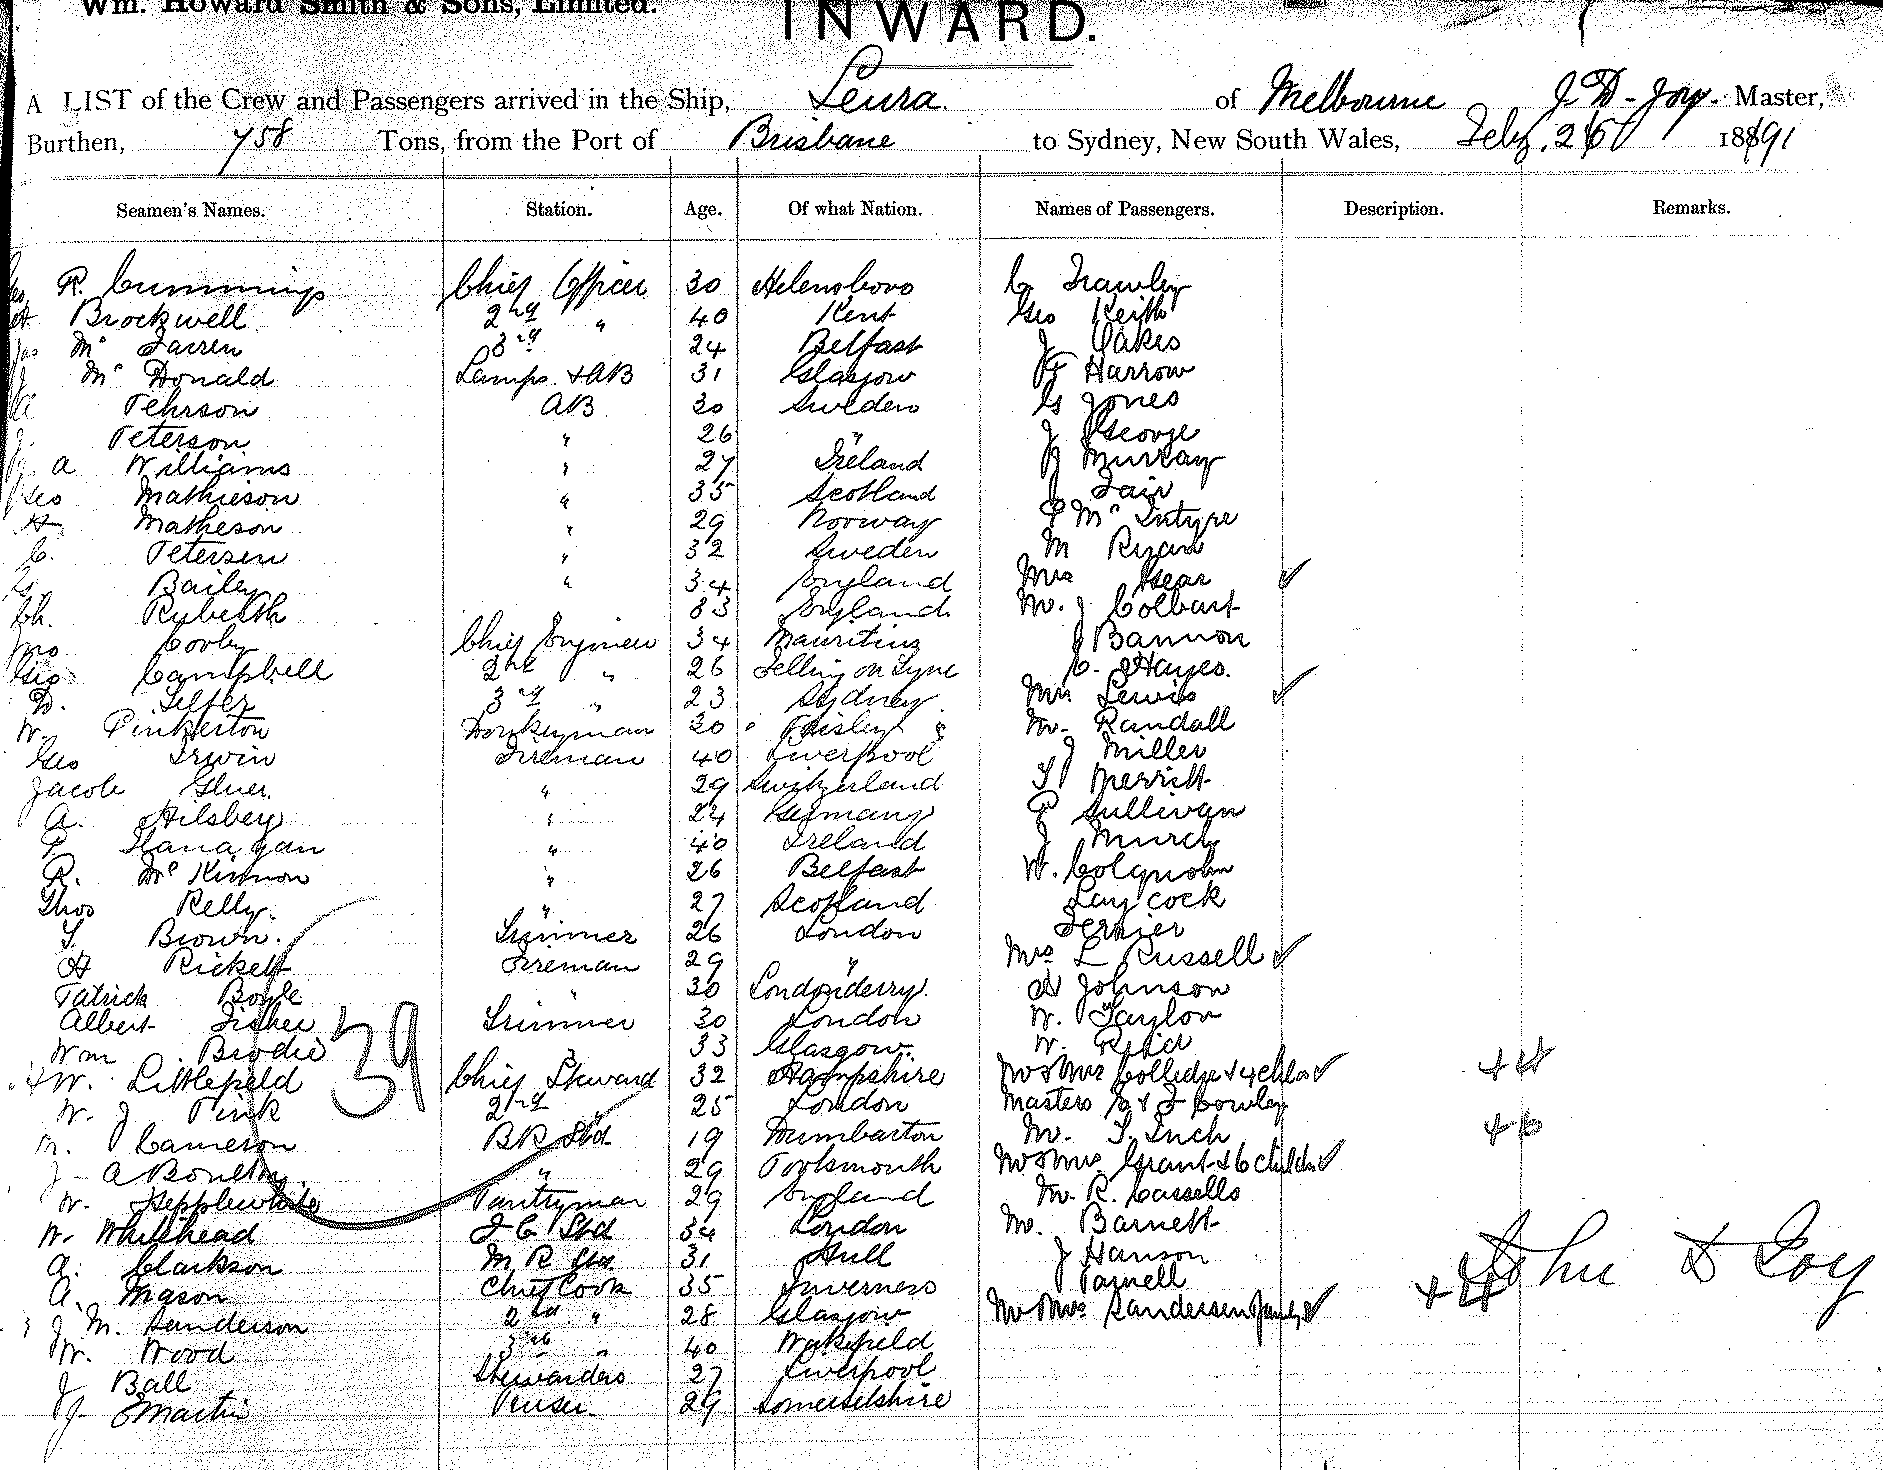 Wm. Howard Smith & Sons, Limited.
INWARD.
A LIST of the Crew and Passengers arrived in the Ship, Leura of Melbourne J. D. Joy. Master,
Burthen, 758 Tons, from the Port of Brisbane to Sydney, New South Wales, Feby. 1891
Seamen's Names. Station. Age. Of what Nation. Names of Passengers. Description. Remarks.
R. Cummings Chief Officer 30 Helensboro C Frawley
Brockwell 2nd " 40 Kent Geo Keith
Jas Mc Farren 3rd 24 Belfast J Oakes
J Mc Donald Lamps & AB 31 Glasgow F Harrow
Pehrson AB 30 Sweden G Jones
J. Peterson " 26 " J George
A Williams " 27 Ireland Murray
Geo Mathieson " 35 Scotland J Fair
H Matheson " 29 Norway P Mc Intyre
C. Petersen " 32 Sweden M Ryan
G. Bailey " 34 England Mrs Gear ✓
Ch. Rubeith 33 England Mr. J Colbart
Jno Corby Chief Engineer 34 Mauritius J Bannon
Geo Campbell 2nd " 26 Felling on Tyne C. Hayes.
D. Silfer 3rd " 23 Sydney Mrs Lewis ✓
W. Pinkerton Donkeyman 30 Paisley Mr. Randall
Geo Irwin Fireman 40 Liverpool J Miller
Jacob Gluer " 29 Switzerland T Merritt
A. Hilsbey " 24 Germany P Sullivan
P Flanagan " 40 Ireland J Murch
R. Mc Kinnon " 26 Belfast W. Colquohn
Thos Kelly " 27 Scotland Laycock
T. Brown. Trimmer 26 London Fernier
H Rickett Fireman 29 " Mrs L Russell ✓
Patrick Boyle " 30 Londonderry. A Johnson
Albert Fisher Trimmer 30 London W. Taylor
Wm Brodie 33 Glasgow W. Reid
39
W. Littlefield Chief Steward 32 Hampshire Mr & Mrs Colledge & 4 chldn ✓ +4
W. J Pink 2nd " 25 London Masters & J Cowley
M. Cameron BR Std 19 Dumbarton Mr. T. Inch +6
J. A Boulton " 29 Portsmouth Mr & Mrs Grant & 6 childn ✓
W. Hepplewhite Pantryman 29 England Mr. R. Cassells
W. Whitehead F C Std 34 London Mr. Barnett
A. Clarkson M R Std 31 Hull J Hanson
A. Mason Chief Cook 35 Inverness Parnell
J M. Sanderson 2nd " 28 Glasgow Mr & Mrs Sandersen family ✓ +4
John D Joy
W. Wood 3rd " 40 Wakefield
J Ball Stewardess 27 Liverpool
J. Martin Purser 29 Somersetshire